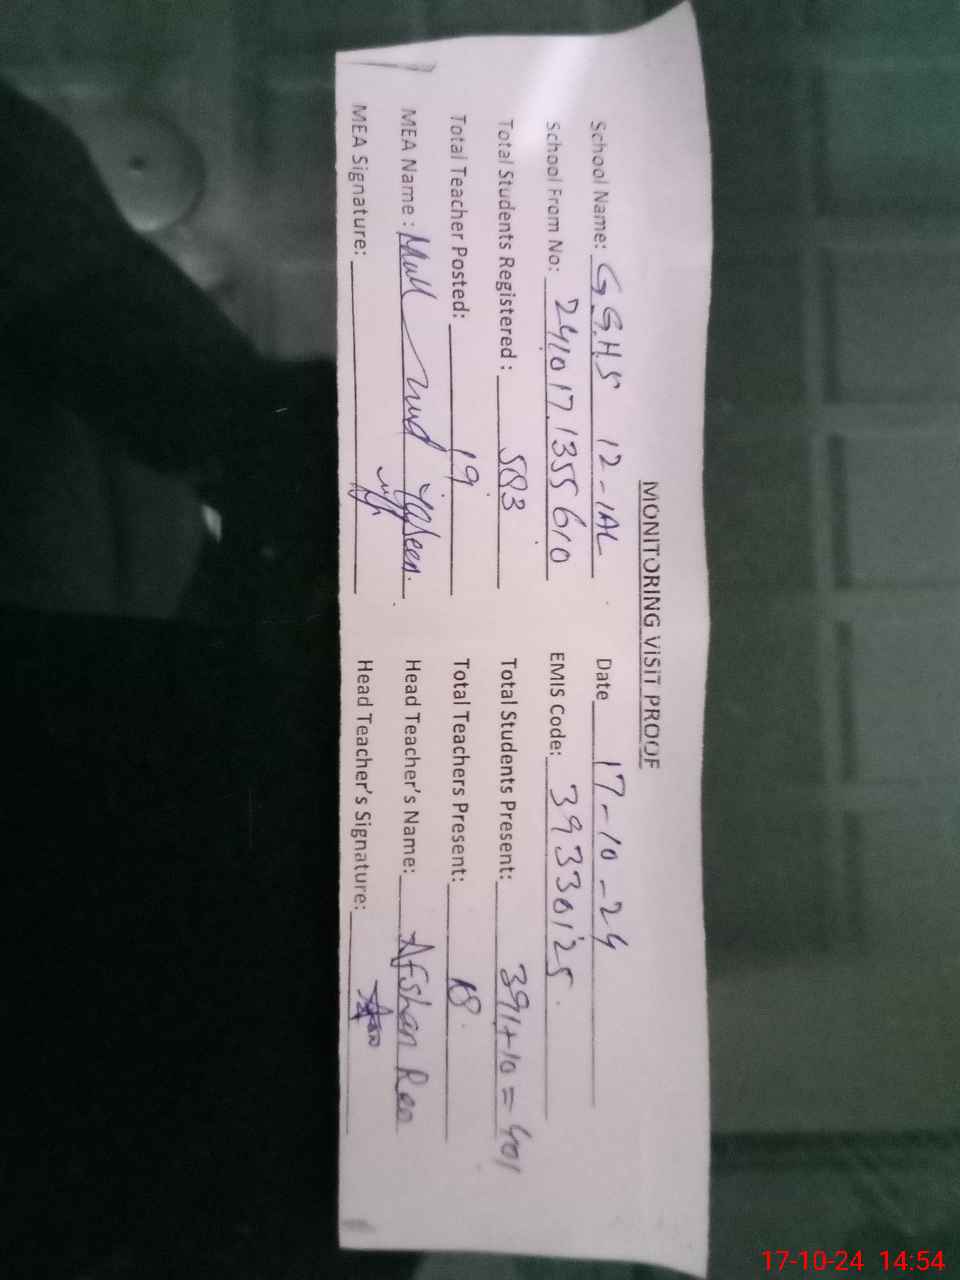 MONITORING VISIT PROOF
School Name: G.G.H.S 12-1AL Date 17-10-24
School From No: 2410171355610 EMIS Code: 39330125
Total Students Registered : 583 Total Students Present: 391+10=401
Total Teacher Posted: 19 Total Teachers Present: 18
MEA Name : Yaseen Head Teacher's Name: Afshan Rao
MEA Signature: Head Teacher's Signature:
17-10-24 14:54